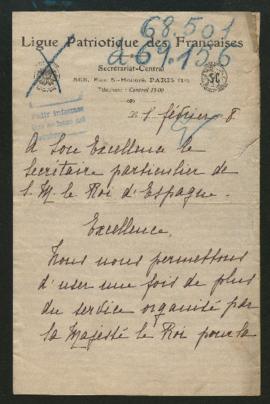 68.501
Ligue Patriotique des Françaises
à 69.155
Secrétariat-Central
368, Rue S-Honoré, PARIS (1er)
Téléphone : Central 13-00
1 février 8
Pedir informes
A Son Excellence le
Secrétaire particulier de
S. M. le Roi d'Espagne.
Excellence,
Nous nous permettons
d'user une fois de plus
du service organisé par
Sa Majesté le Roi pour la